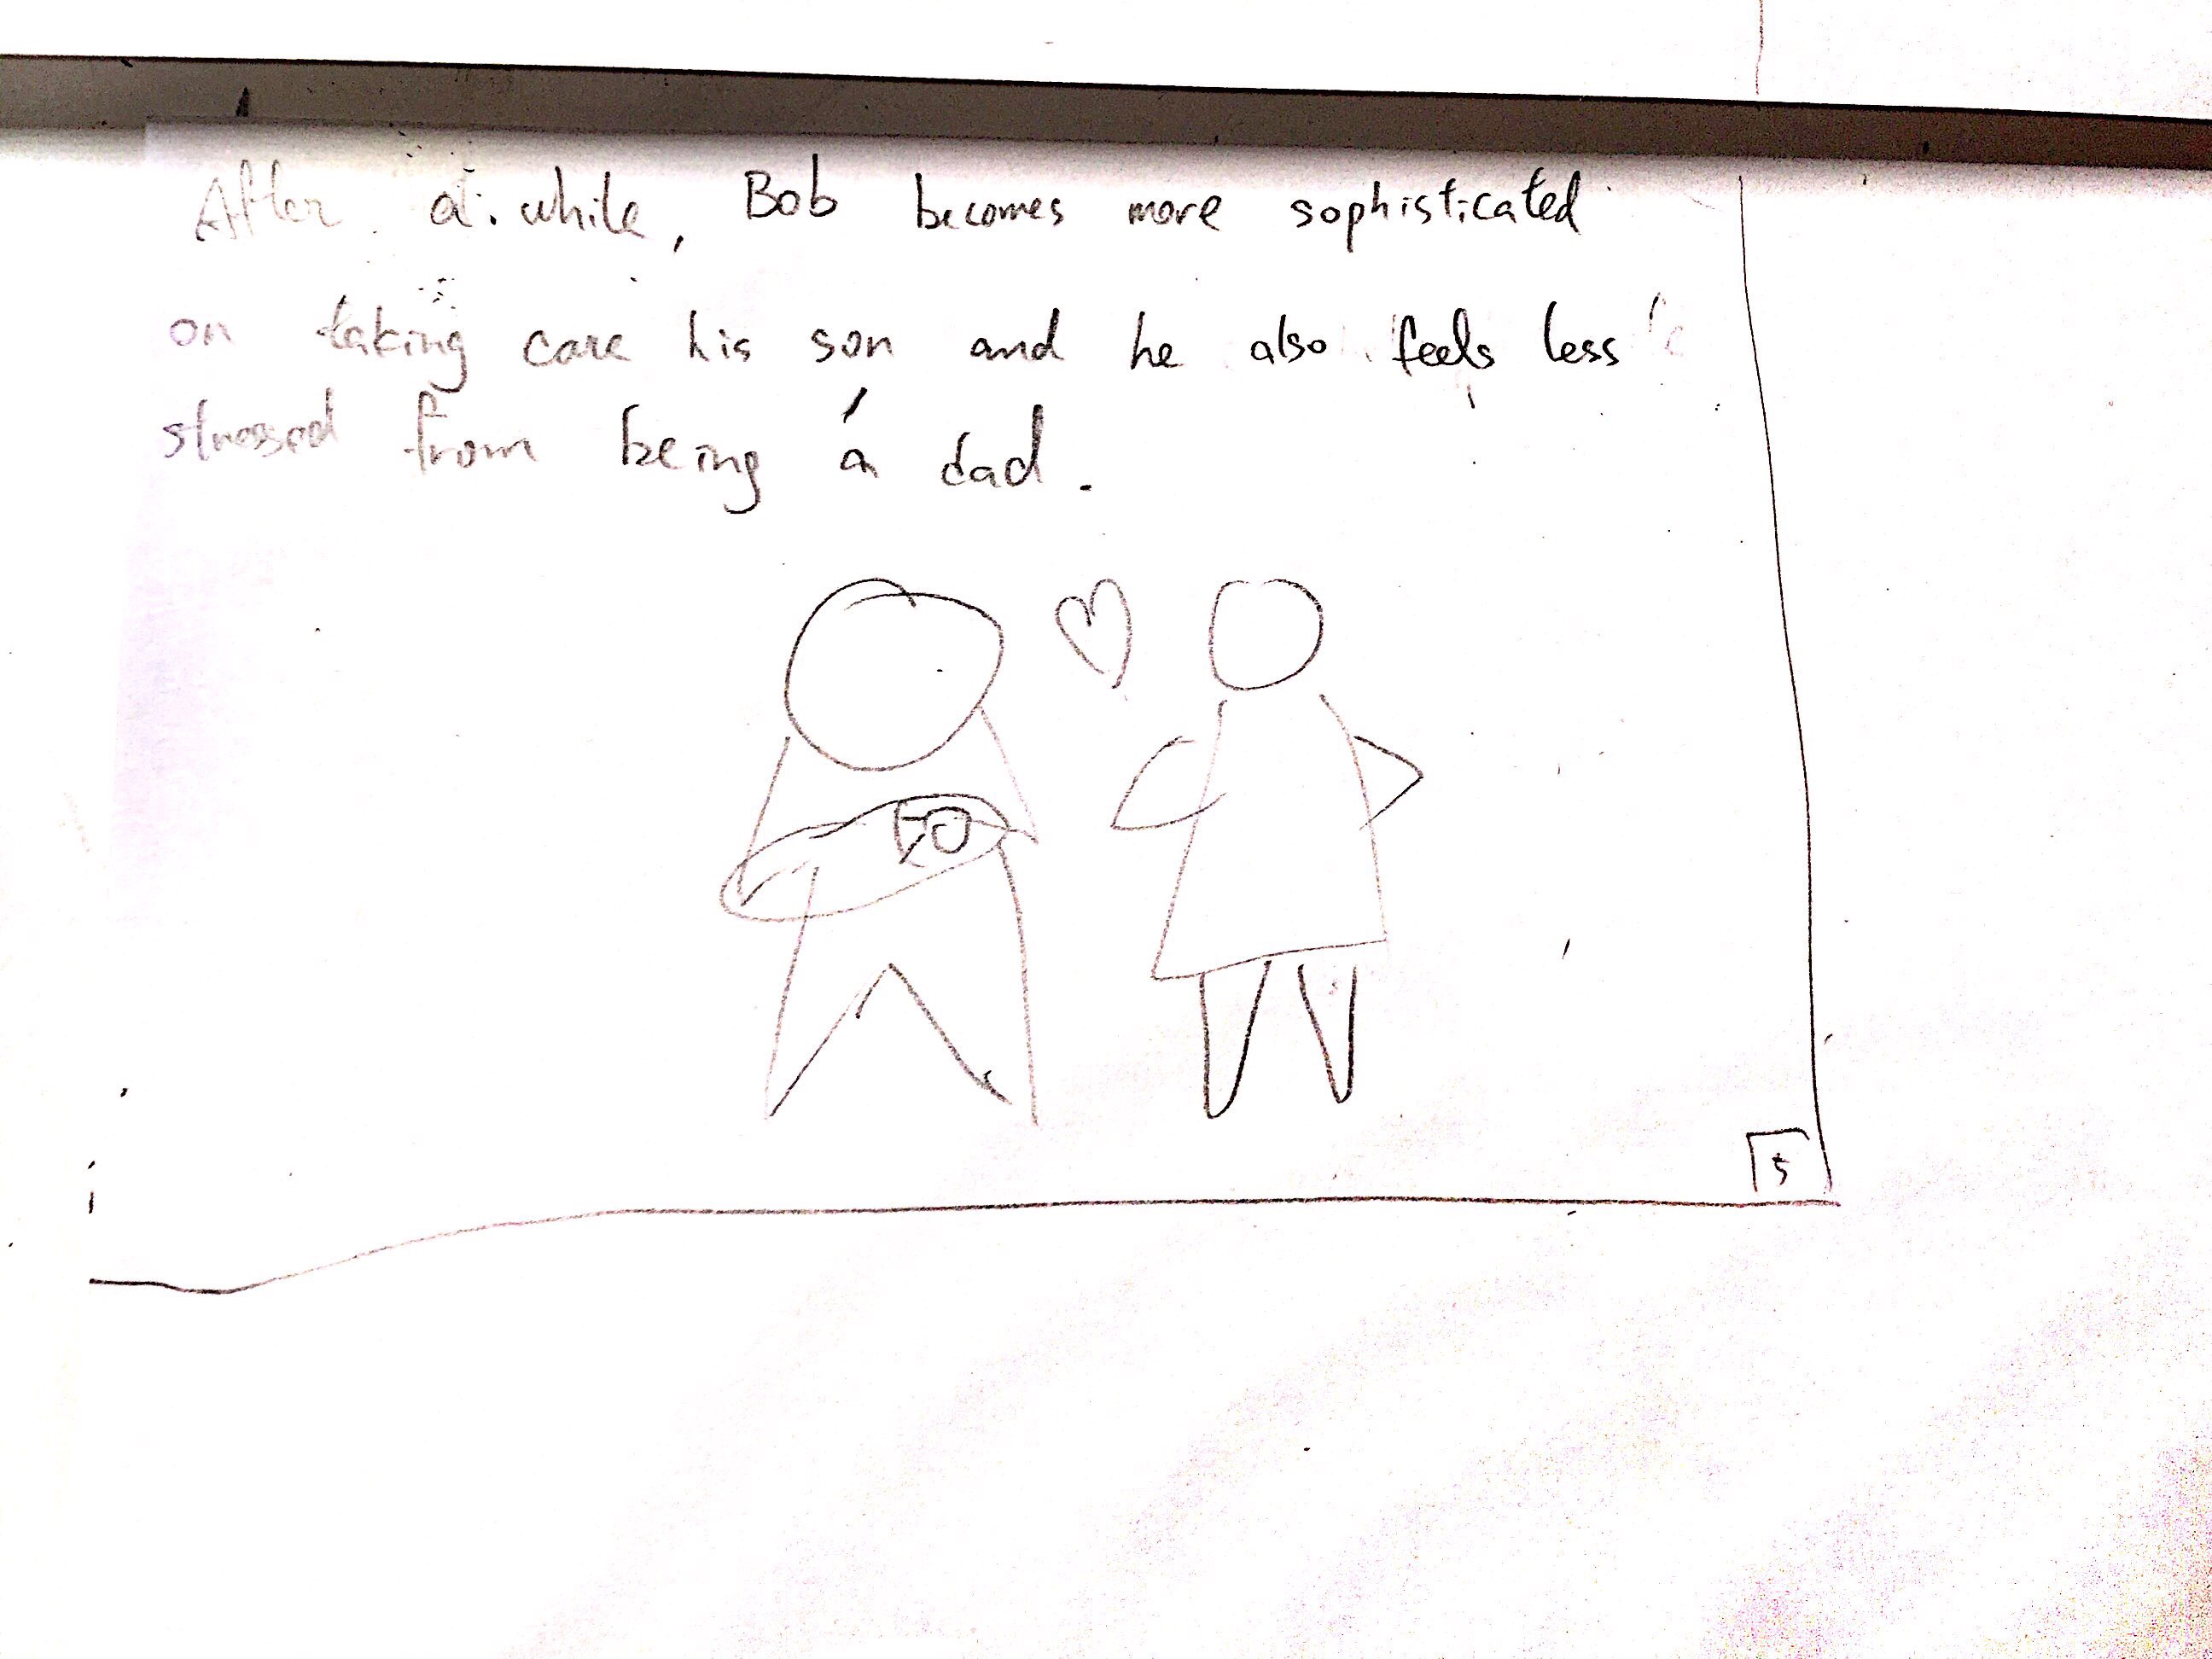 After a while, Bob becomes more sophisticated
on taking care his son and he also feels less
stressed from being a dad.
5